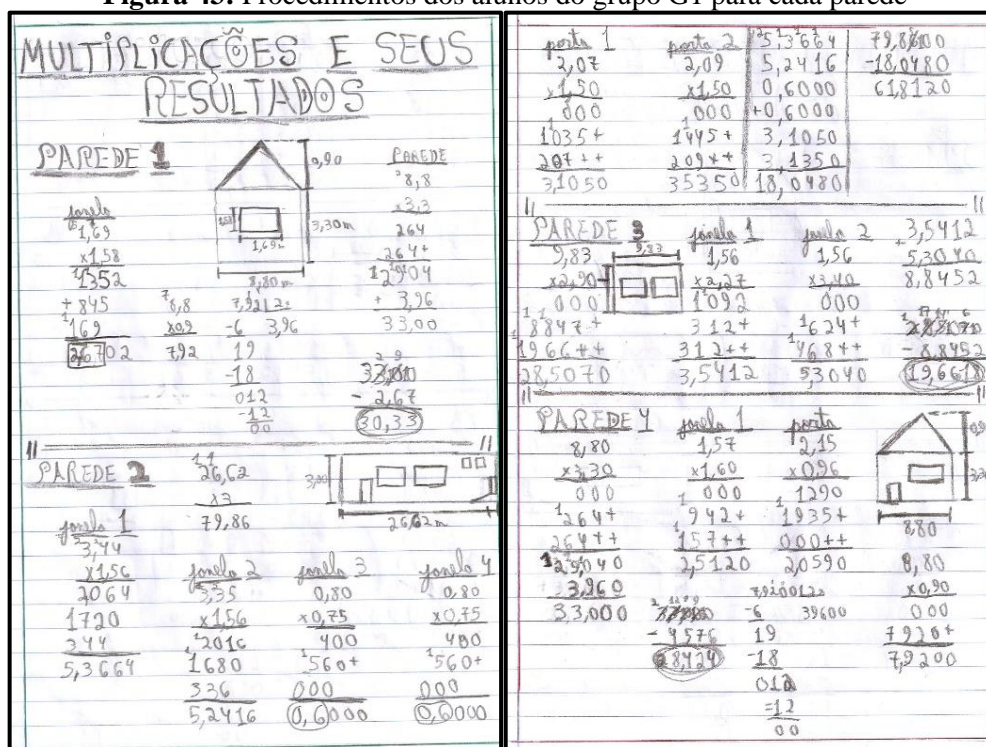 Figura 45. Procedimentos dos alunos do grupo G1 para cada parede
MULTIPLICAÇÕES E SEUS
RESULTADOS
PAREDE 1
0,90
3,30m
1,69
8,80m
PAREDE
8,8
x3,3
264
264+
12904
+ 3,96
33,00
janela
1,69
x1,58
1352
+ 845
169
26702
8,8
x0,9
792
7,92 2
-6 3,96
19
-18
012
-12
00
- 2,67
30,33
PAREDE 2
26,62
x3
79,86
3,00
26,62m
janela 1
3,44
x1,56
2064
1720
344
5,3664
janela 2
3,35
x1,56
2016
1680
336
5,2416
janela 3
0,80
x0,75
400
560+
000
0,6000
janela 4
0,80
x0,75
400
560+
000
0,6000
porta 1
2,07
x1,50
000
1035+
207++
3,1050
porta 2
2,09
x1,50
000
1445+
209++
35350
5,3664
5,2416
0,6000
+0,6000
3,1050
3,1350
18,0480
-18,0480
618120
PAREDE 3
9,83
x2,90
000
8847+
1966++
28,5070
9,83
janela 1
1,56
x2,27
1092
312+
312++
3,5412
janela 2
1,56
x3,40
000
624+
468++
53040
3,5412
+
5,3040
8,8452
- 8,8452
19,6618
PAREDE 4
8,80
x3,30
000
264+
264++
29,040
3,960
33,000
janela 1
1,57
x1,60
000
942+
157++
2,5120
porta
2,15
x0,96
1290
1935+
000++
2,0590
8,80
8,80
x0,90
000
7920+
7,9200
- 4576
28,424
-6 39600
19
-18
012
=12
00